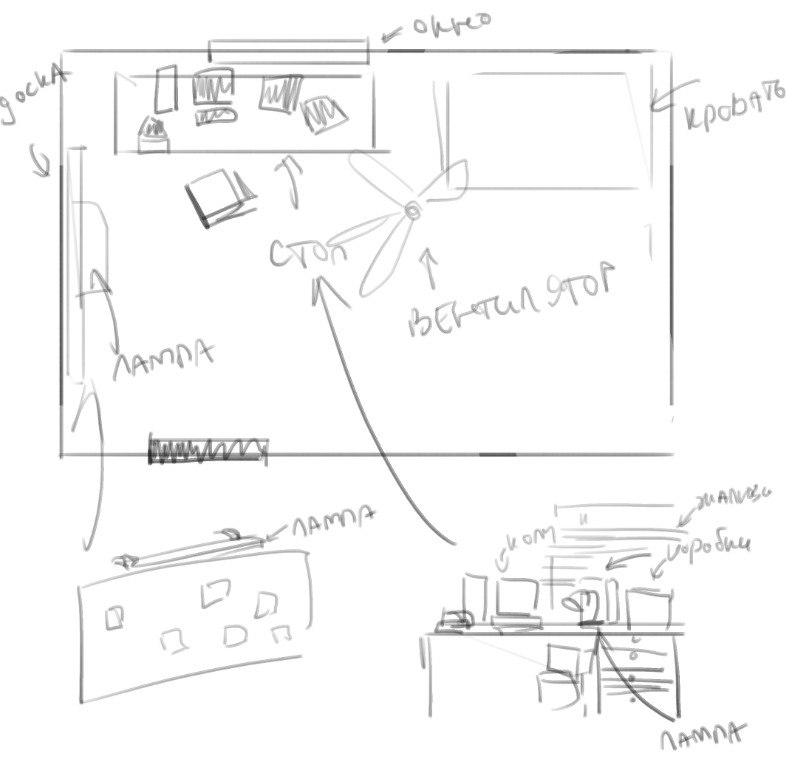 окно
доска
кровать
стол
вентилятор
лампа
лампа
жалюзи
комп
коробки
лампа